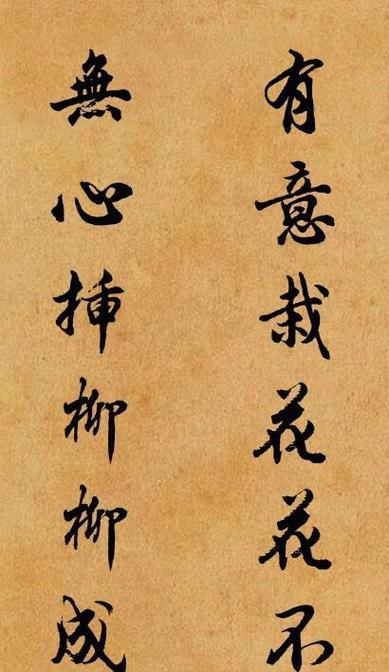 有意栽花花不
無心插柳柳成